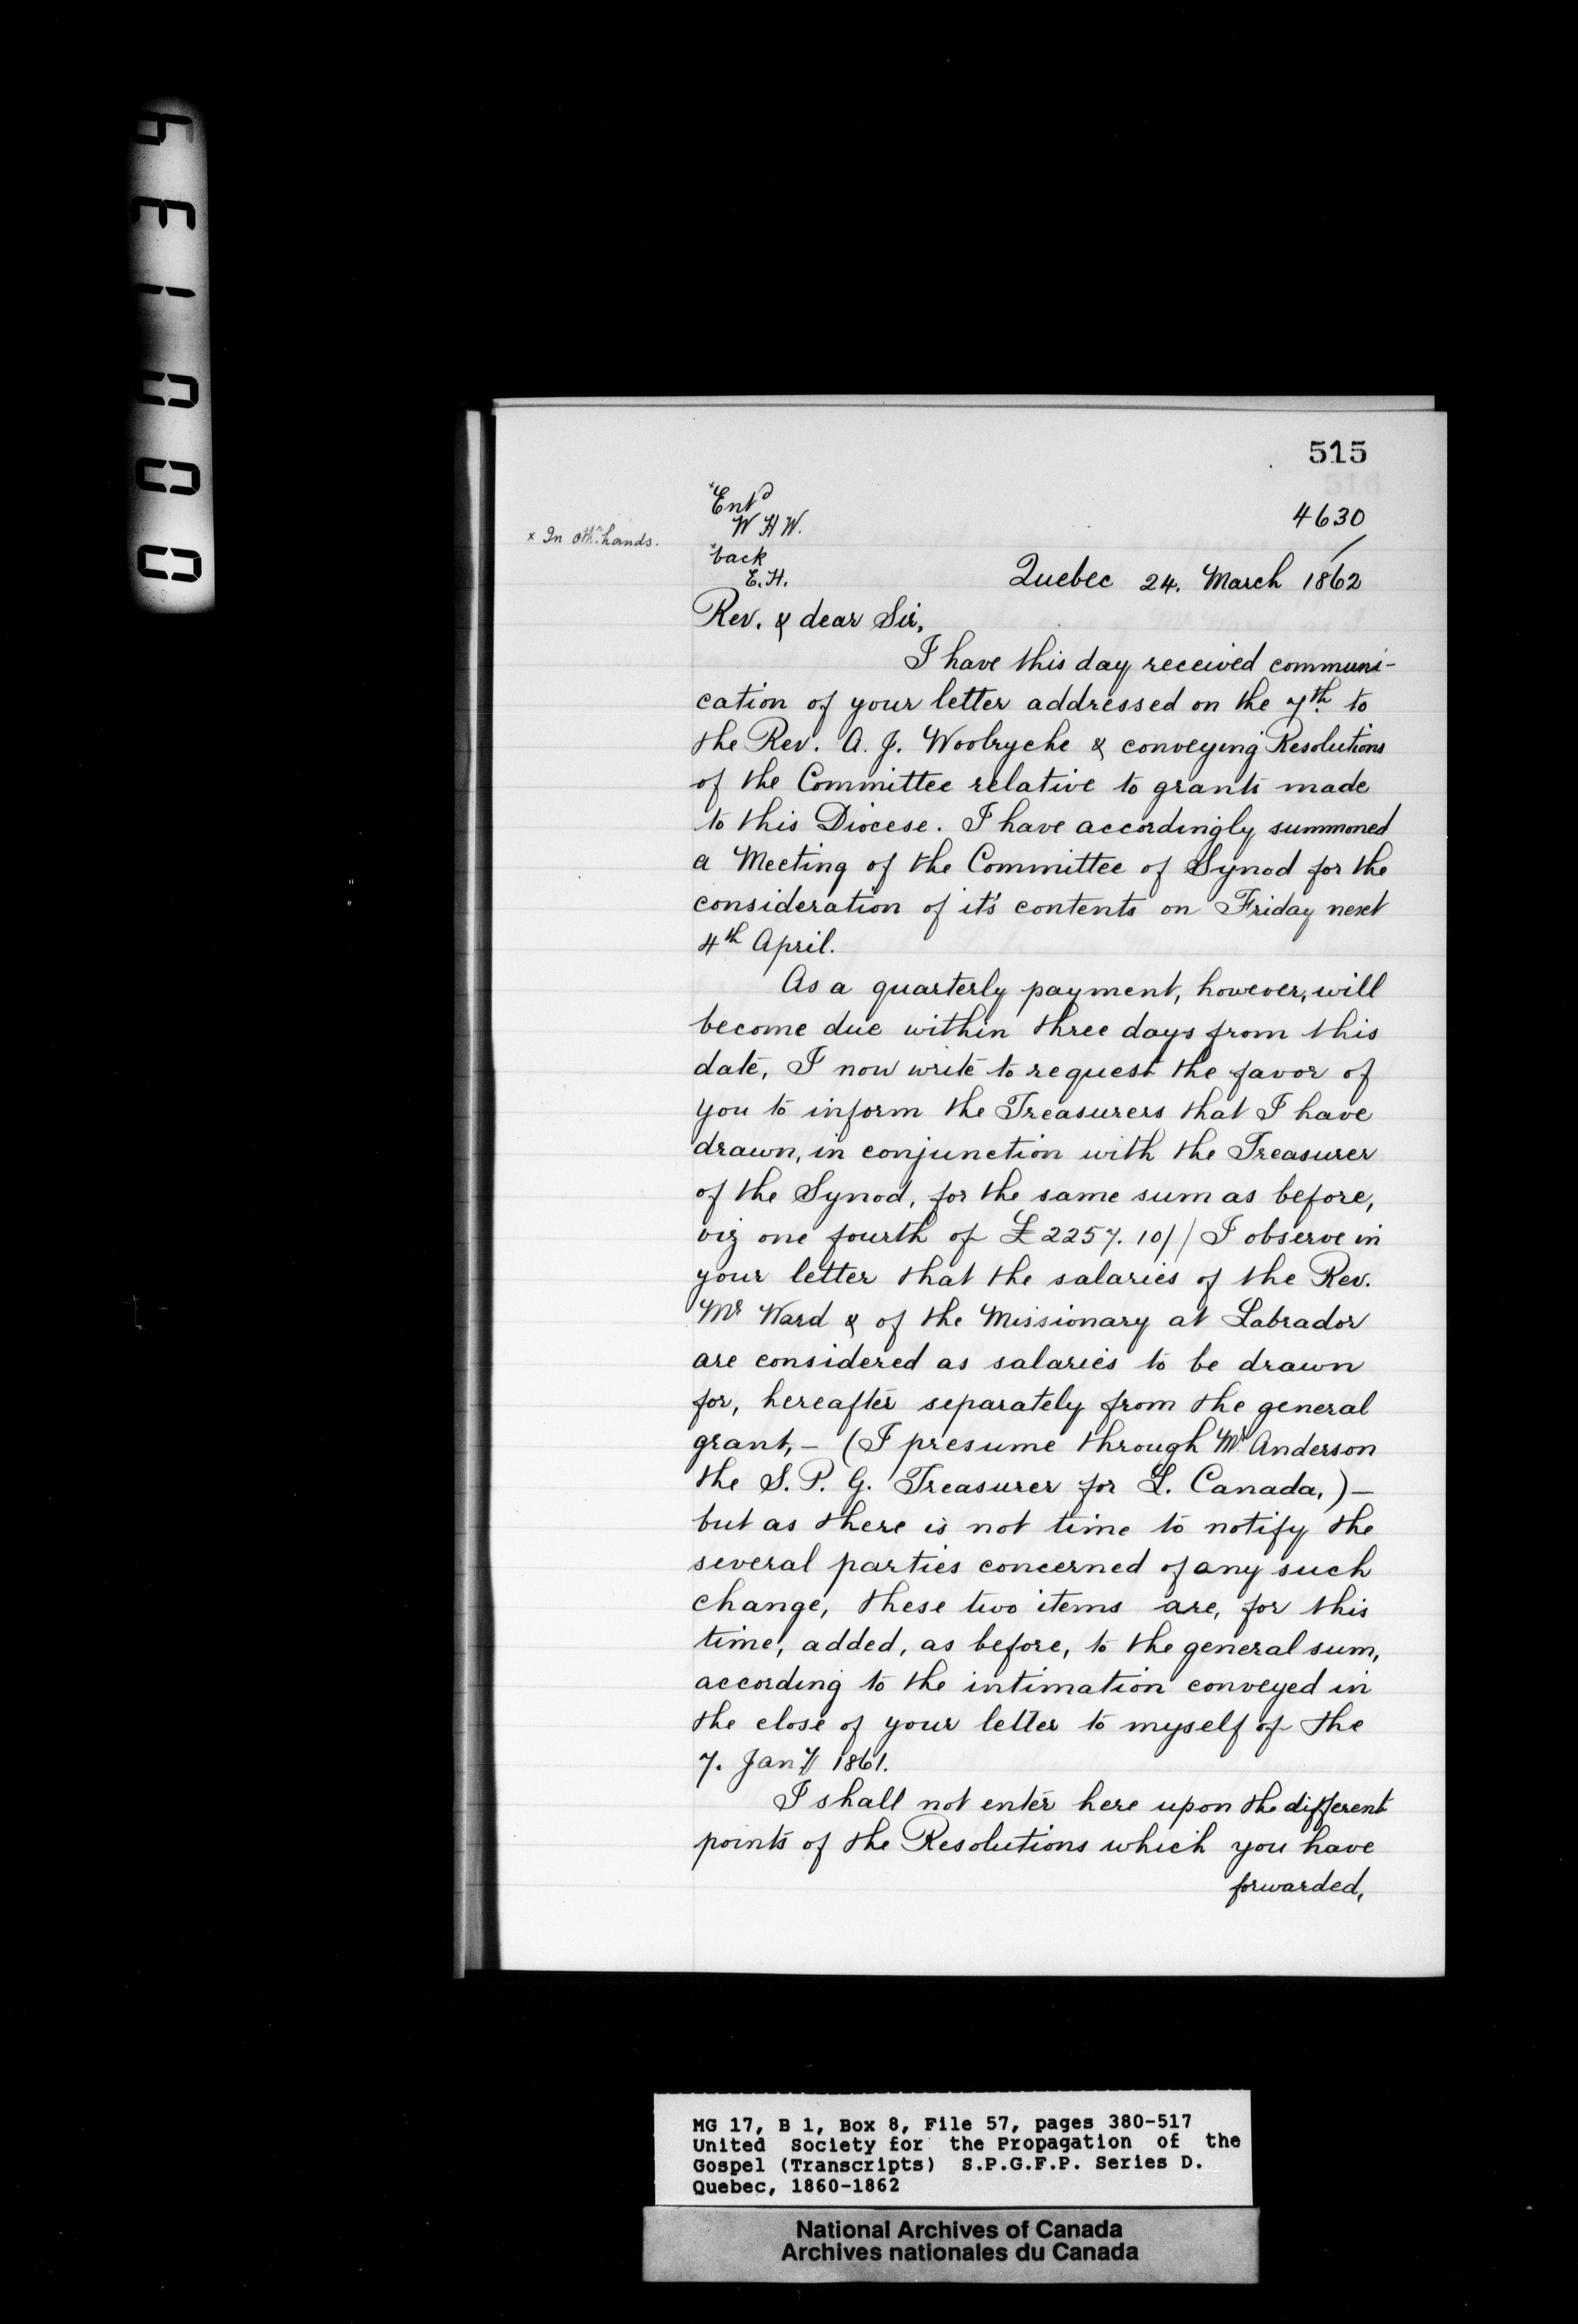 515
4630
x Ent^d
W H W.
x In oth^r hands.
x back
E. H.
Quebec 24. March 1862
Rev. & dear Sir,
I have this day received communi-
cation of your letter addressed on the 7th. to
the Rev. A. J. Woolryche & conveying Resolutions
of the Committee relative to grants made
to this Diocese. I have accordingly summoned
a Meeting of the Committee of Synod for the
consideration of it's contents on Friday next
4th April.
As a quarterly payment, however, will
become due within three days from this
date, I now write to request the favor of
you to inform the Treasurers that I have
drawn, in conjunction with the Treasurer
of the Synod, for the same sum as before,
viz one fourth of £2257. 10// I observe in
your letter that the salaries of the Rev.
Mr Ward & of the Missionary at Labrador
are considered as salaries to be drawn
for, hereafter separately from the general
grant, – (I presume through Mr Anderson
the S. P. G. Treasurer for L. Canada,) –
but as there is not time to notify the
several parties concerned of any such
change, these two items are, for this
time, added, as before, to the general sum,
according to the intimation conveyed in
the close of your letter to myself of the
7. Jany// 1861.
I shall not enter here upon the different
points of the Resolutions which you have
forwarded,
MG 17, B 1, Box 8, File 57, pages 380-517
United Society for the Propagation of the
Gospel (Transcripts) S.P.G.F.P. Series D.
Quebec, 1860-1862
National Archives of Canada
Archives nationales du Canada